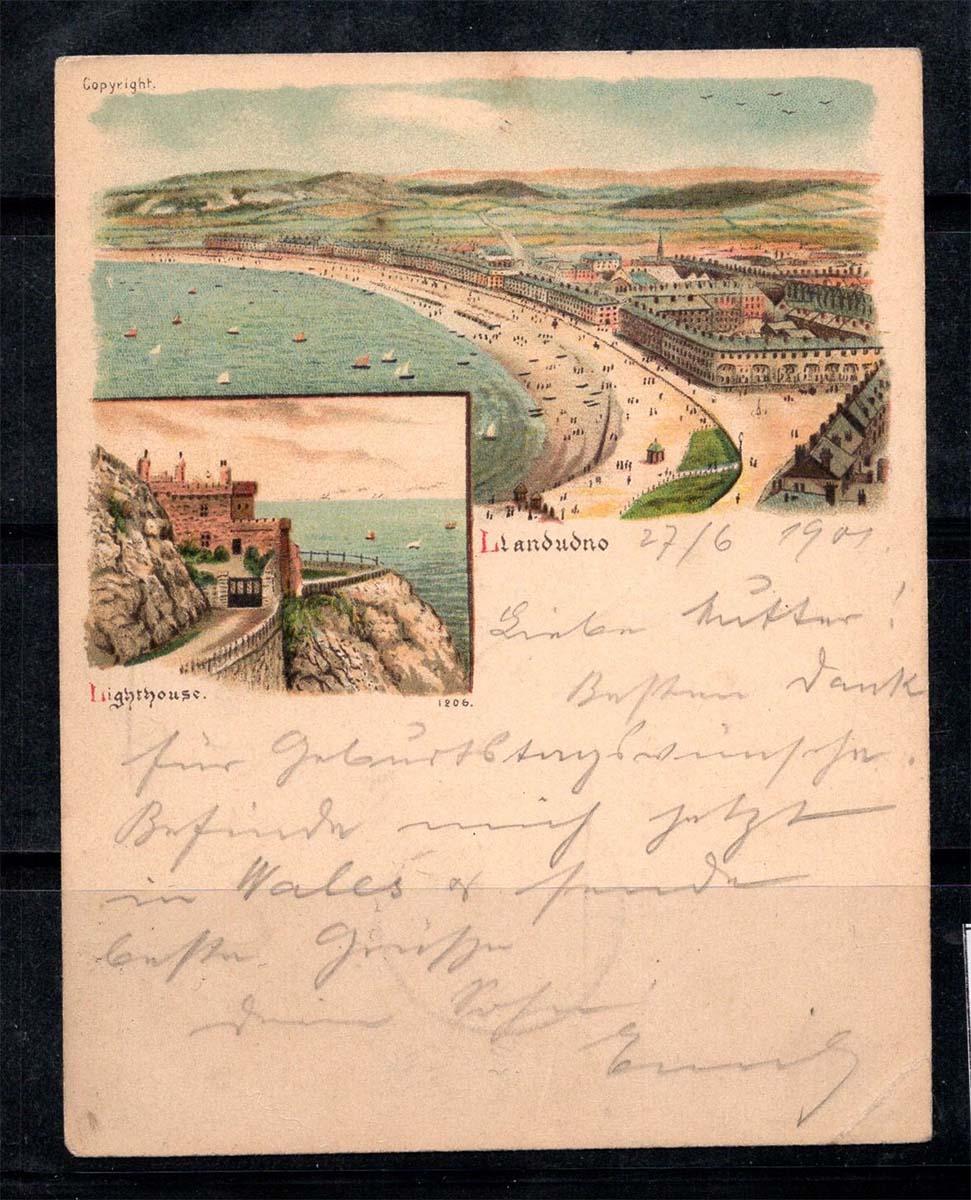 Copyright.
Llandudno 27/6 1901.
Lighthouse.
1206.
Liebe Mutter!
Besten Dank
für Geburtstagswünsche.
Befinde mich jetzt
in Wales & sende
beste Grüsse
dein Sohn
Emil